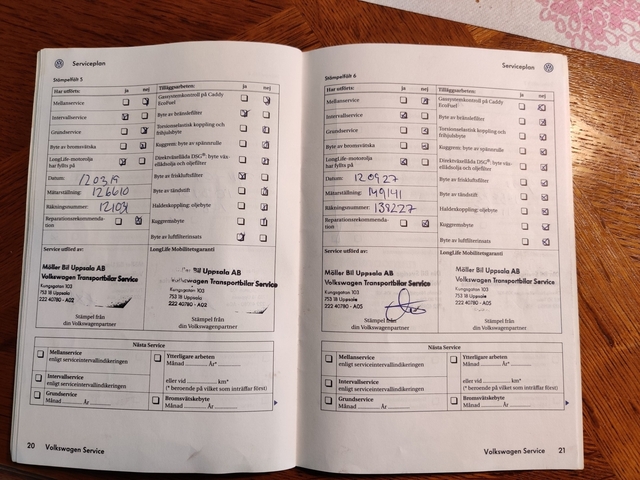 Serviceplan
Stämpelfält 5
Har utförts: ja nej
Mellanservice
Intervallservice
Grundservice
Byte av bromsvätska
LongLife-motorolja
har fyllts på
Datum: 120319
Mätarställning: 126610
Räkningsnummer:
Reparationsrekommenda-
tion
Tilläggsarbeten: ja nej
Gassystemkontroll på Caddy
EcoFuel
Byte av bränslefilter
Torsionselastisk koppling och
frihjulsbyte
Kuggrem: byte av spännrulle
Direktväxellåda DSG®: byte väx-
ellådsolja och oljefilter
Byte av friskluftsfilter
Byte av tändstift
Haldexkoppling: oljebyte
Kuggremsbyte
Byte av luftfilterinsats
Service utförd av:
LongLife Mobilitetsgaranti
Möller Bil Uppsala AB
Volkswagen Transportbilar Service
Kungsgatan 103
753 18 Uppsala
222 40780 - A02
Bil Uppsala AB
Volkswagen Transportbilar Service
Kungsgatan 103
753 18 Uppsala
222 40780 - A02
Stämpel från
din Volkswagenpartner
Stämpel från
din Volkswagenpartner
Nästa Service
Mellanservice
enligt serviceintervallindikeringen
Intervallservice
enligt serviceintervallindikeringen
Grundservice
Månad År
Ytterligare arbeten
Månad År*
eller vid km*
(* beroende på vilket som inträffar först)
Bromsvätskebyte
Månad År
20 Volkswagen Service
Serviceplan
Stämpelfält 6
Har utförts: ja nej
Mellanservice
Intervallservice
Grundservice
Byte av bromsvätska
LongLife-motorolja
har fyllts på
Datum: 120927
Mätarställning: 149141
Räkningsnummer: 138227
Reparationsrekommenda-
tion
Tilläggsarbeten: ja nej
Gassystemkontroll på Caddy
EcoFuel
Byte av bränslefilter
Torsionselastisk koppling och
frihjulsbyte
Kuggrem: byte av spännrulle
Direktväxellåda DSG®: byte väx-
ellådsolja och oljefilter
Byte av friskluftsfilter
Byte av tändstift
Haldexkoppling: oljebyte
Kuggremsbyte
Byte av luftfilterinsats
Service utförd av:
LongLife Mobilitetsgaranti
Möller Bil Uppsala AB
Volkswagen Transportbilar Service
Kungsgatan 103
753 18 Uppsala
222 40780 - A05
Möller Bil Uppsala AB
Volkswagen Transportbilar Service
Kungsgatan 103
753 18 Uppsala
222 40780 - A05
Stämpel från
din Volkswagenpartner
Stämpel från
din Volkswagenpartner
Nästa Service
Mellanservice
enligt serviceintervallindikeringen
Intervallservice
enligt serviceintervallindikeringen
Grundservice
Månad År
Ytterligare arbeten
Månad År*
eller vid km*
(* beroende på vilket som inträffar först)
Bromsvätskebyte
Månad År
Volkswagen Service 21